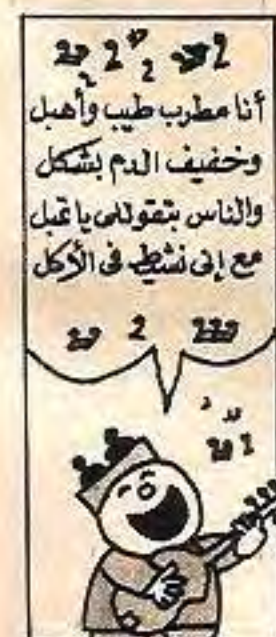 أنا مطرب طيب وأهبل
وخفيف الدم بشكل
والناس بتقوللى يا تمبل
مع إنى نشيط فى الأكل